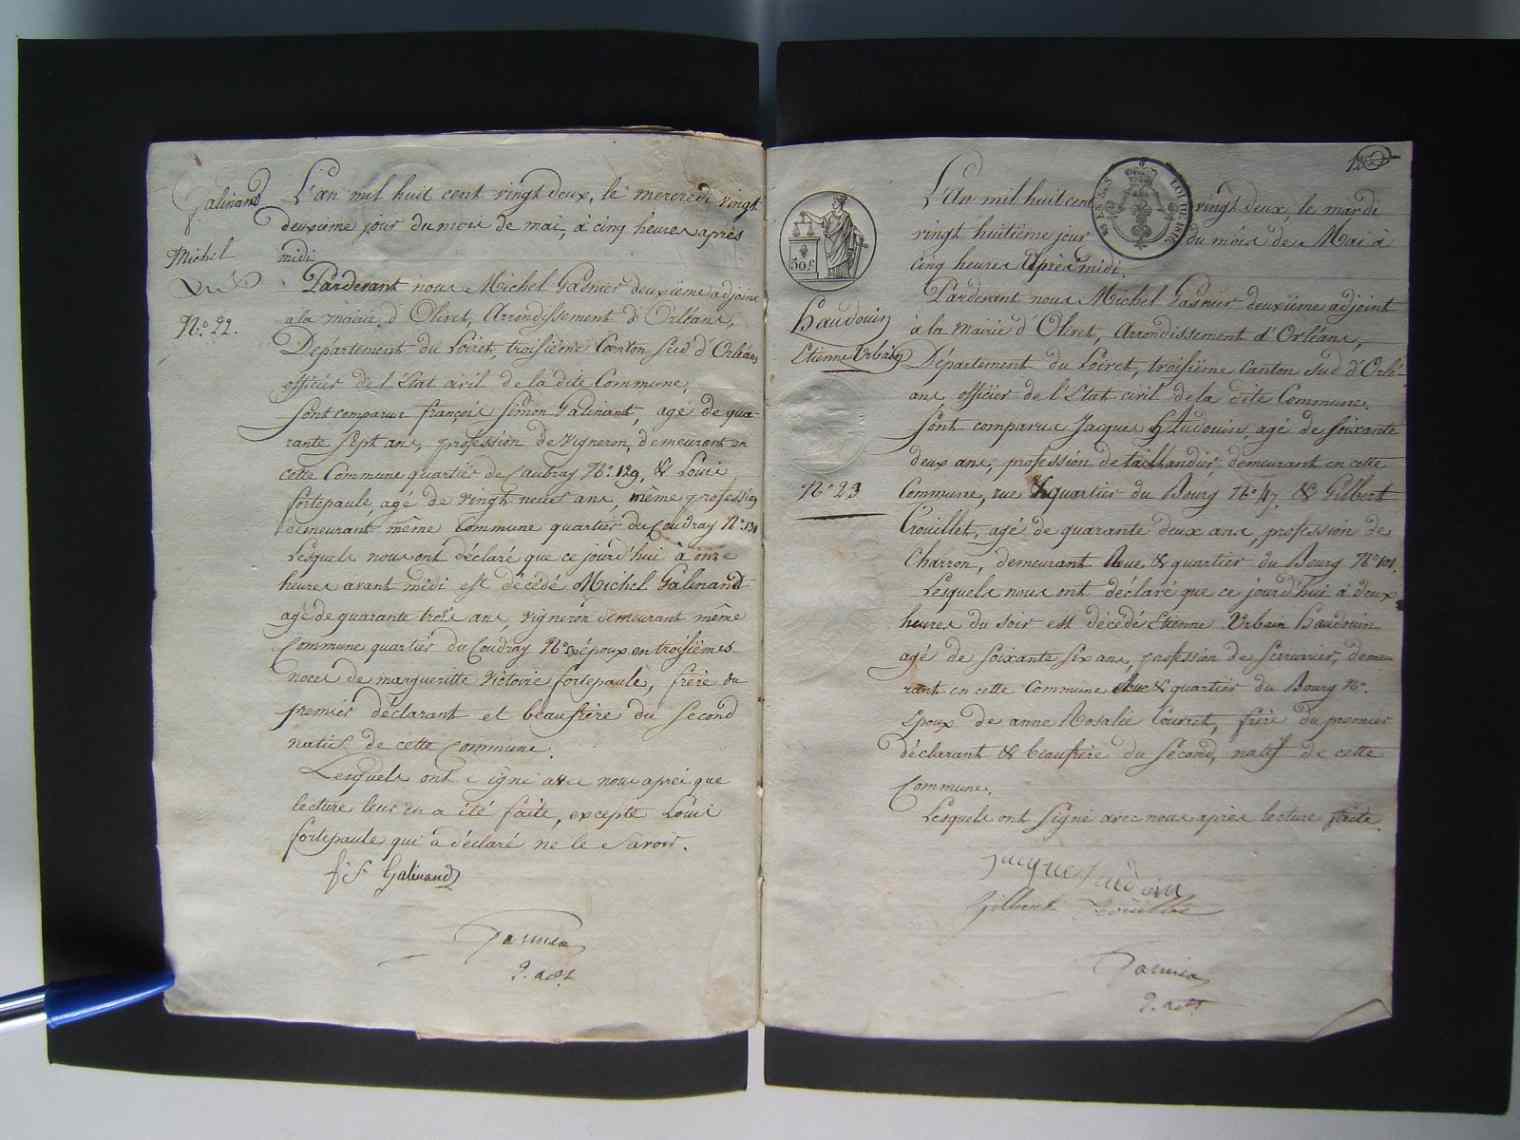 Galinand
Michel
N.° 22.
L'an mil huit cent vingt deux, le mercredi vingt
deuxième jour du mois de mai, à cinq heures après
midi
Pardevant nous Michel Gasnier deuxième adjoint
a la mairie d'Olivet, Arrondissement d'Orléans,
Département du Loiret, troisième Canton Sud d'Orléans
officier de l'état civil de la dite Commune,
sont comparus françois Simon Galinand, agé de qua-
rante sept ans, profession de vigneron, demeurant en
cette Commune quartier de Caubray N.° 129, & Louis
fortepaule, agé de vingt neuf ans, même profession
demeurant même Commune quartier du Coudray N.° 131
Lesquels nous ont déclaré que ce jourd'hui à onze
heures avant midi est décédé Michel Galinand
agé de quarante trois ans, vigneron demeurant même
Commune quartier du Coudray N.° époux en troisièmes
noces de margueritte victoire fortepaule, frère du
premier déclarant et beaufrère du second
natif de cette Commune.
Lesquels ont signé avec nous après que
lecture leur en a été faite, excepté Louis
fortepaule qui a déclaré ne le savoir.
f. S. Galinand
Gasnier
2. adjt
50c
Haudouin
Etienne Urbain
N.° 23
L'An mil huit cent vingt deux, le mardi
vingt huitième jour du mois de Mai à
cinq heures Après midi.
Pardevant nous Michel Gasnier deuxième adjoint
à la Mairie d'Olivet, Arrondissement d'Orléans,
Département du Loiret, troisième Canton Sud d'Orlé-
ans officier de l'Etat civil de la dite Commune.
Sont comparus Jacques Haudouin, agé de soixante
deux ans, profession de taillandier, demeurant en cette
Commune, rue & quartier du Bourg N.° 47, & Gilbert
Crouillet, agé de quarante deux ans, profession de
Charron, demeurant Rue & quartier du Bourg N.° 101.
Lesquels nous ont déclaré que ce jourd'hui à deux
heures du soir est décédé Etienne Urbain Haudouin
agé de soixante six ans, profession de serrurier, demeu
rant en cette Commune Rue & quartier du Bourg N.°
Epoux de anne Rosalie Couvret, frère du premier
déclarant & beaufrère du second, natif de cette
Commune.
Lesquels ont signé avec nous après lecture faite.
jacque haudouin
Gilbert Crouillet
Gasnier
2. adjt